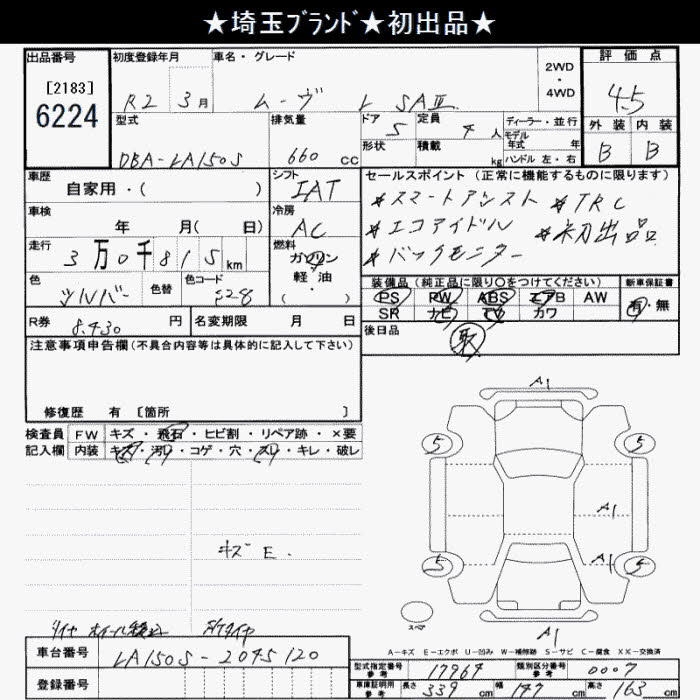 ★埼玉ﾌﾞﾗﾝﾄﾞ★初出品★
出品番号 初度登録年月 車名・グレード 2WD・4WD 評価点
[2183]
6224
R2 3月 ムーヴ L SAⅢ 4.5
型式 排気量 ドア 5 定員 4人 ディーラー・並行 外装 内装
形状 積載 kg モデル年式 年 ハンドル 左・右
DBA-LA150S 660cc B B
車歴 シフト セールスポイント(正常に機能するものに限ります)
自家用・( ) IAT
*スマートアシスト *TRC
車検 冷房
年 月( 日) AC
*エコアイドル *初出品
走行 燃料
3万0千815km ガソリン
*バックモニター
軽・油
・( )
色 色替 色コード
シルバー S28
装備品(純正品に限り○をつけてください) 新車保証書
PS PW ABS エアB AW 有・無
SR ナビ TV カワ
R券 8.430円 名変期限 月 日
後日品 取
注意事項申告欄(不具合内容等は具体的に記入して下さい)
修復歴 有 [箇所 ]
検査員記入欄 FW キズ・飛石・ヒビ割・リペア跡・×要
内装 キズ・汚レ・コゲ・穴・スレ・キレ・破レ
A1
5 5
A1
A1
5 5
スペア
A1
キズ E.
タイヤ ホイール
A-キズ E-エクボ U-凹み W-補修跡 S-サビ C-腐食 XX-交換済
車台番号 LA150S-2045120
登録番号
型式指定番号参考 17964 類別区分番号参考 0007
車庫証明用参考 長さ 339cm 幅 147cm 高さ 163cm